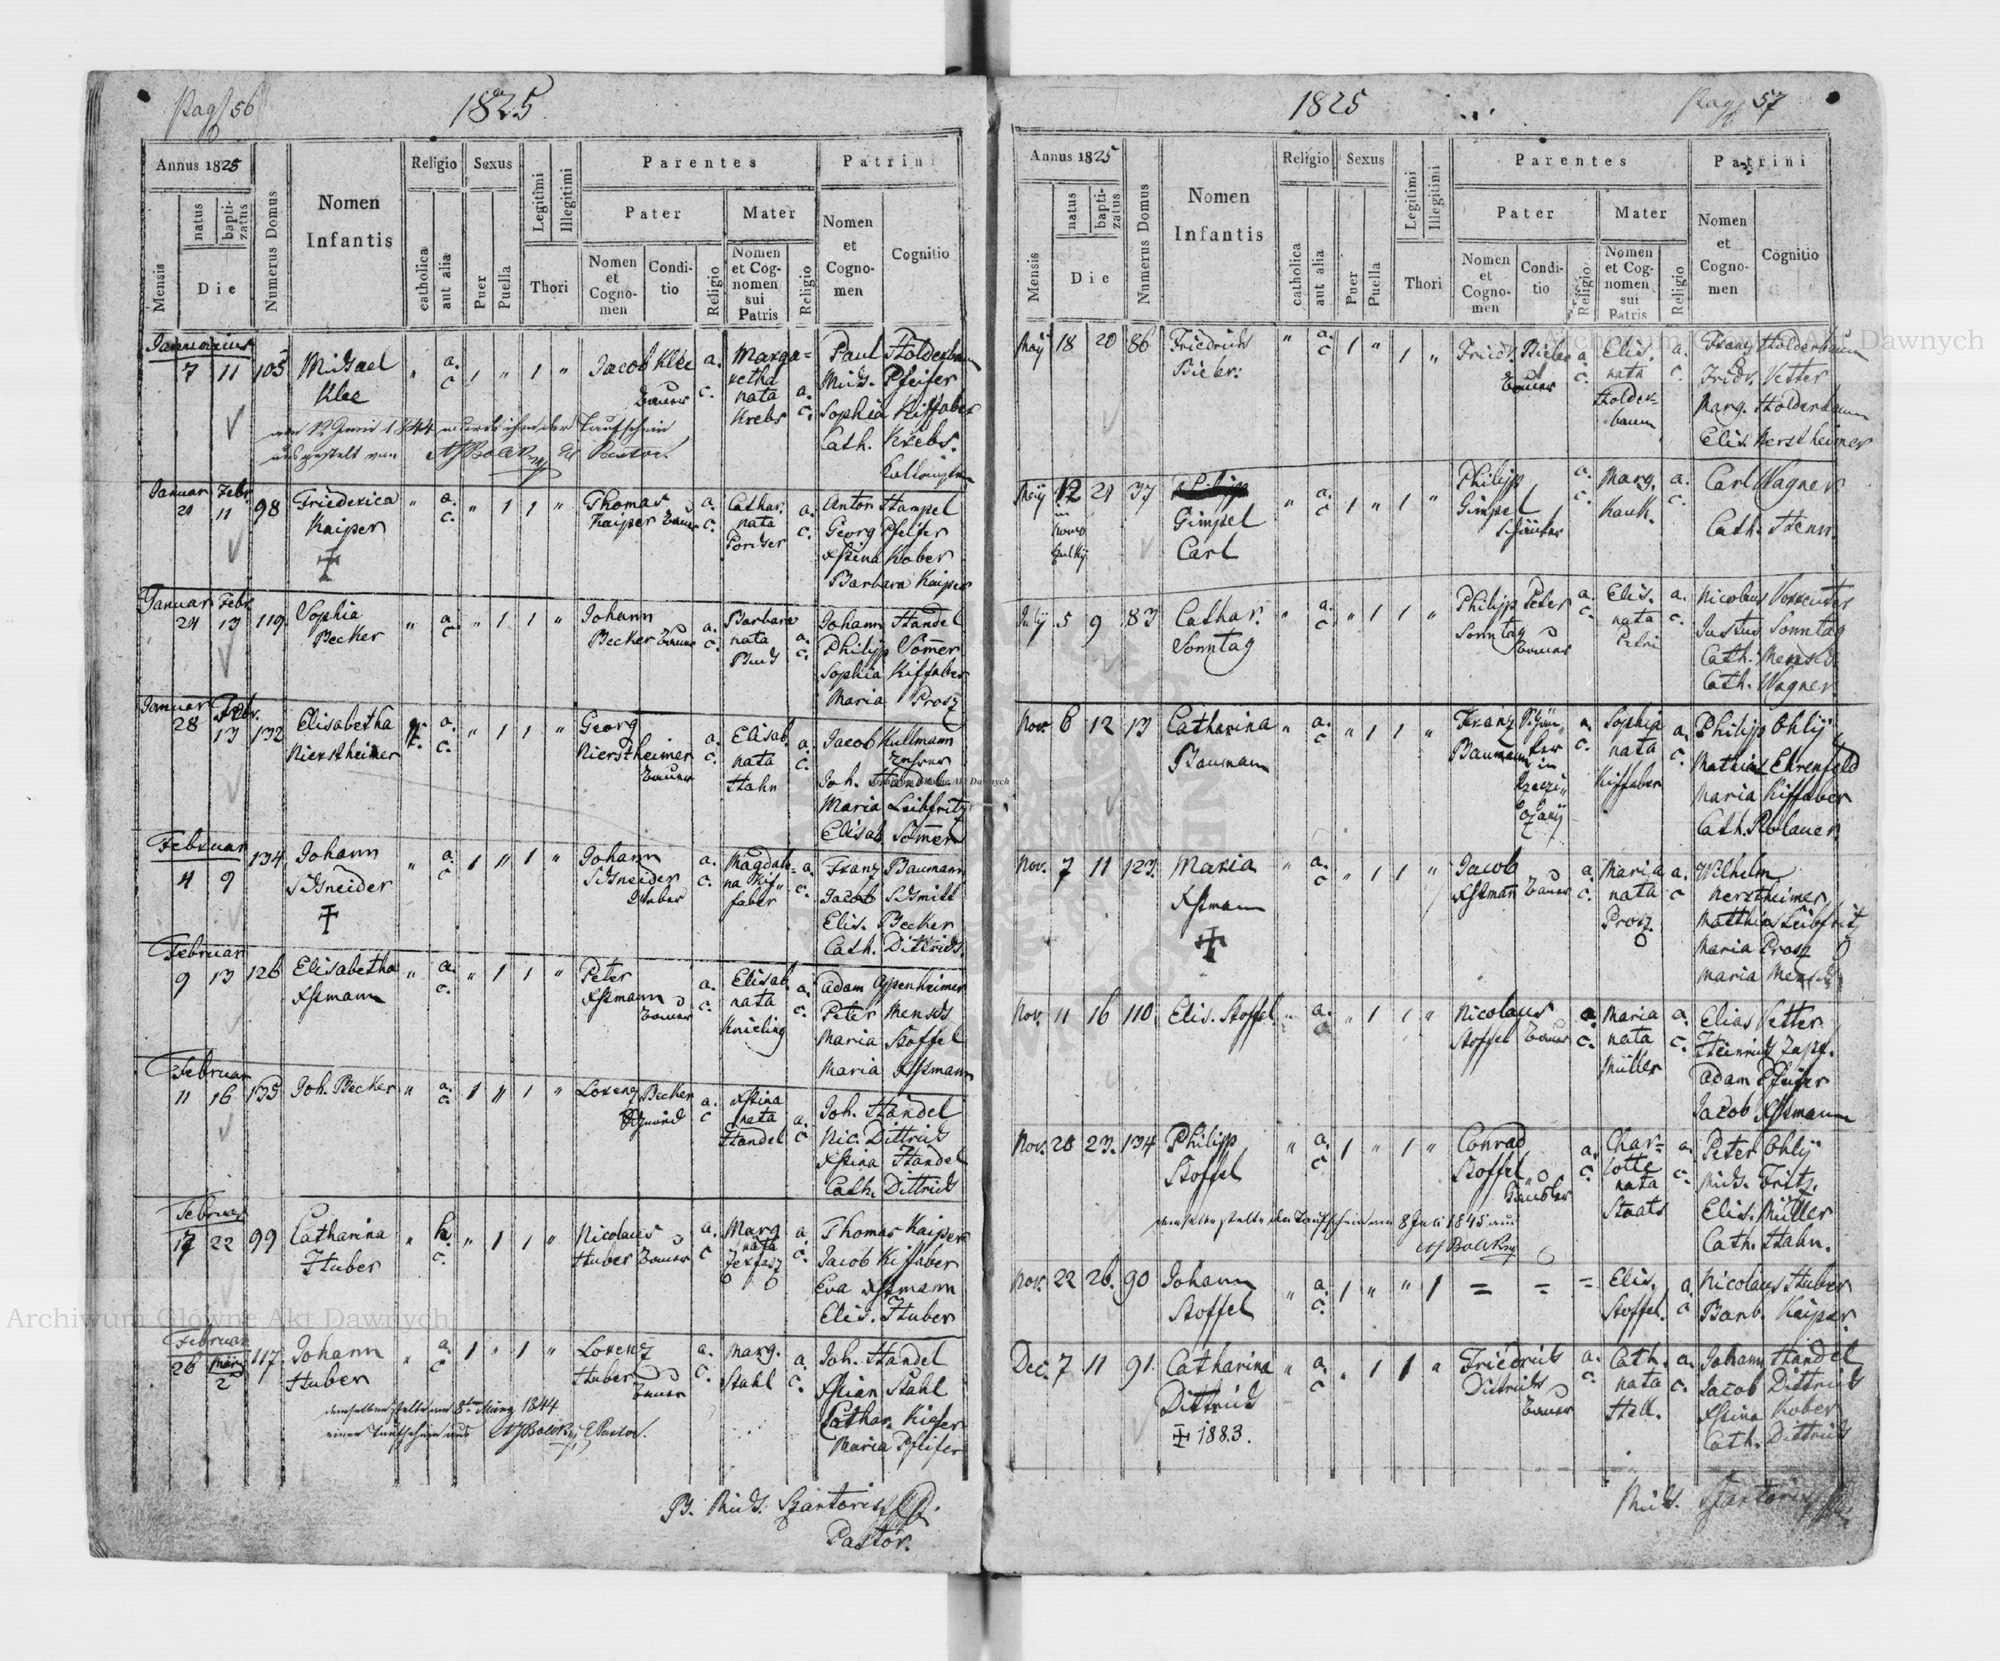 Pag. 56
1825
Annus 1825
Mensis
natus
baptizatus
Die
Numerus Domus
Nomen
Infantis
Religio
catholica
aut alia
Sexus
Puer
Puella
Legitimi
Illegitimi
Thori
Parentes
Pater
Nomen
et
Cognomen
Conditio
Religio
Mater
Nomen
et Cognomen
sui
Patris
Religio
Patrini
Nomen
et
Cognomen
Cognitio
Januarius
7 11 105 Michael Klee " a. c. 1 " 1 " Jacob Klee Bauer a. c. Margaretha nata Krebs a. c.
Paul Holderbaum
Mich. Pfeifer
Sophia Kiffaber
Cath. Krebs
Januar 21 Febr. 11 98 Friederica Kaiper " a. c. " 1 1 " Thomas Kaiper Bauer a. c. Cathar. nata a. c.
Anton Hampel
Georg Pfeifer
Xstina Kober
Barbara Kaiper
Januar 24 Febr. 13 119 Sophia Becker " a. c. " 1 1 " Johann Becker Bauer a. c. Barbara nata Buch a. c.
Johann Handel
Philipp Sommer
Sophia Kiffaber
Maria Prosz
Januar 28 Febr. 13 132 Elisabetha Nierstheimer a. c. " 1 1 " Georg Nierstheimer Bauer a. c. Elisab. nata Hahn a. c.
Jacob Kullmann
Joh. Handel
Maria Leibfritz
Elisab. Sommer
Februar
4 9 134 Johann Schneider " a. c. 1 " 1 " Johann Schneider Weber a. c. Magdalena Kiffaber a. c.
Franz Baumann
Jacob Schmitt
Elis. Becker
Cath. Dittrich
Februar
9 13 126 Elisabetha Xstmann " a. c. " 1 1 " Peter Xstmann Bauer a. c. Elisab. nata Knieling a. c.
Adam Oppenheimer
Peter Mensch
Maria Stoffel
Maria Xstmann
Februar
11 16 135 Joh. Becker " a. c. 1 " 1 " Lorenz Becker Schmid a. c. Xstina nata Handel a. c.
Joh. Handel
Nic. Dittrich
Xstina Handel
Cath. Dittrich
Februar
17 22 99 Catharina Huber " c. " 1 1 " Nicolaus Huber Bauer a. c. Marg. nata a. c.
Thomas Kaiper
Jacob Kiffaber
Eva Xstmann
Elis. Huber
Februar
26 März 2 117 Johann Huber " a. c. 1 " 1 " Lorenz Huber Bauer a. c. Marg. Stahl a. c.
Joh. Handel
Xstian Stahl
Cathar. Kiefer
Maria Pfeifer
demselben stellte am 8ten März 1844
einen Taufschein aus
P. Mich. Szartoris
Pastor.
Pag. 57
1825
Annus 1825
Mensis
natus
baptizatus
Die
Numerus Domus
Nomen
Infantis
Religio
catholica
aut alia
Sexus
Puer
Puella
Legitimi
Illegitimi
Thori
Parentes
Pater
Nomen
et
Cognomen
Conditio
Religio
Mater
Nomen
et Cognomen
sui
Patris
Religio
Patrini
Nomen
et
Cognomen
Cognitio
Maij 18 20 86 Friedrich Bieber " a. c. 1 " 1 " Friedr. Bieber Bauer a. c. Elis. nata Holderbaum a. c.
Franz Holderbaum
Fridr. Vetter
Marg. Holderbaum
Elis. Nerstheimer
Maij 12 21 37 Gimpel Carl " a. c. 1 " 1 " Philipp Gimpel a. c. Marg. Kauk. a. c.
Carl Wagner
Julij 5 9 83 Cathar. Sonntag " a. c. " 1 1 " Philipp Peter Sonntag Bauer a. c. Elis. nata Petri a. c.
Justus Sonntag
Cath. Mensch
Cath. Wagner
Nov. 6 12 13 Catharina Baumann " a. c. " 1 1 " Franz Baumann in a. c. Sophia nata Kiffaber a. c.
Philipp Ohlij
Mathias Ehrenfeld
Maria Kiffaber
Nov. 7 11 123 Maria Xstmann " a. c. " 1 1 " Jacob Xstmann Bauer a. c. Maria nata Prosz a. c.
Wilhelm Nerstheimer
Matthias Leibfritz
Maria Prosz
Maria Mensch
Nov. 11 16 110 Elis. Stoffel " a. " 1 1 " Nicolaus Stoffel Bauer a. c. Maria nata Müller a. c.
Elias Vetter
Heinrich Zapf
Adam Pfeifer
Jacob Xstmann
Nov. 20 23 134 Philipp Stoffel " a. c. 1 " 1 " Conrad Stoffel a. c. Charlotte nata Staats a. c.
Peter Ohlij
Mich. Fritz
Elis. Müller
Cath. Hahn
demselben stellte den Taufschein am 8 Juli 1845 aus
Nov. 22 26 90 Johann Stoffel " a. c. 1 " " 1 = = = Elis. Stoffel a.
Nicolaus Huber
Barb. Kaiper
Dec. 7 11 91 Catharina Dittrich " a. c. " 1 1 " Friedrich Dittrich Bauer a. c. Cath. nata Hell. a. c.
Johann Handel
Jacob Dittrich
Xstina Kober
Cath. Dittrich
1883.
Mich. Szartoris
Archiwum Główne Akt Dawnych
Archiwum Główne Akt Dawnych
Archiwum Główne Akt Dawnych